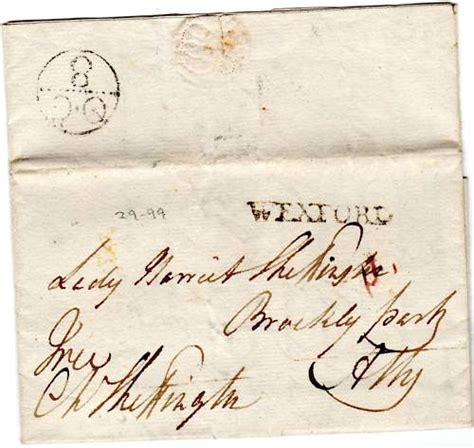 8
29-99
WEXFORD
Lady Harriet Skeffington
Brockly Park
Free
Athy
Skeffington